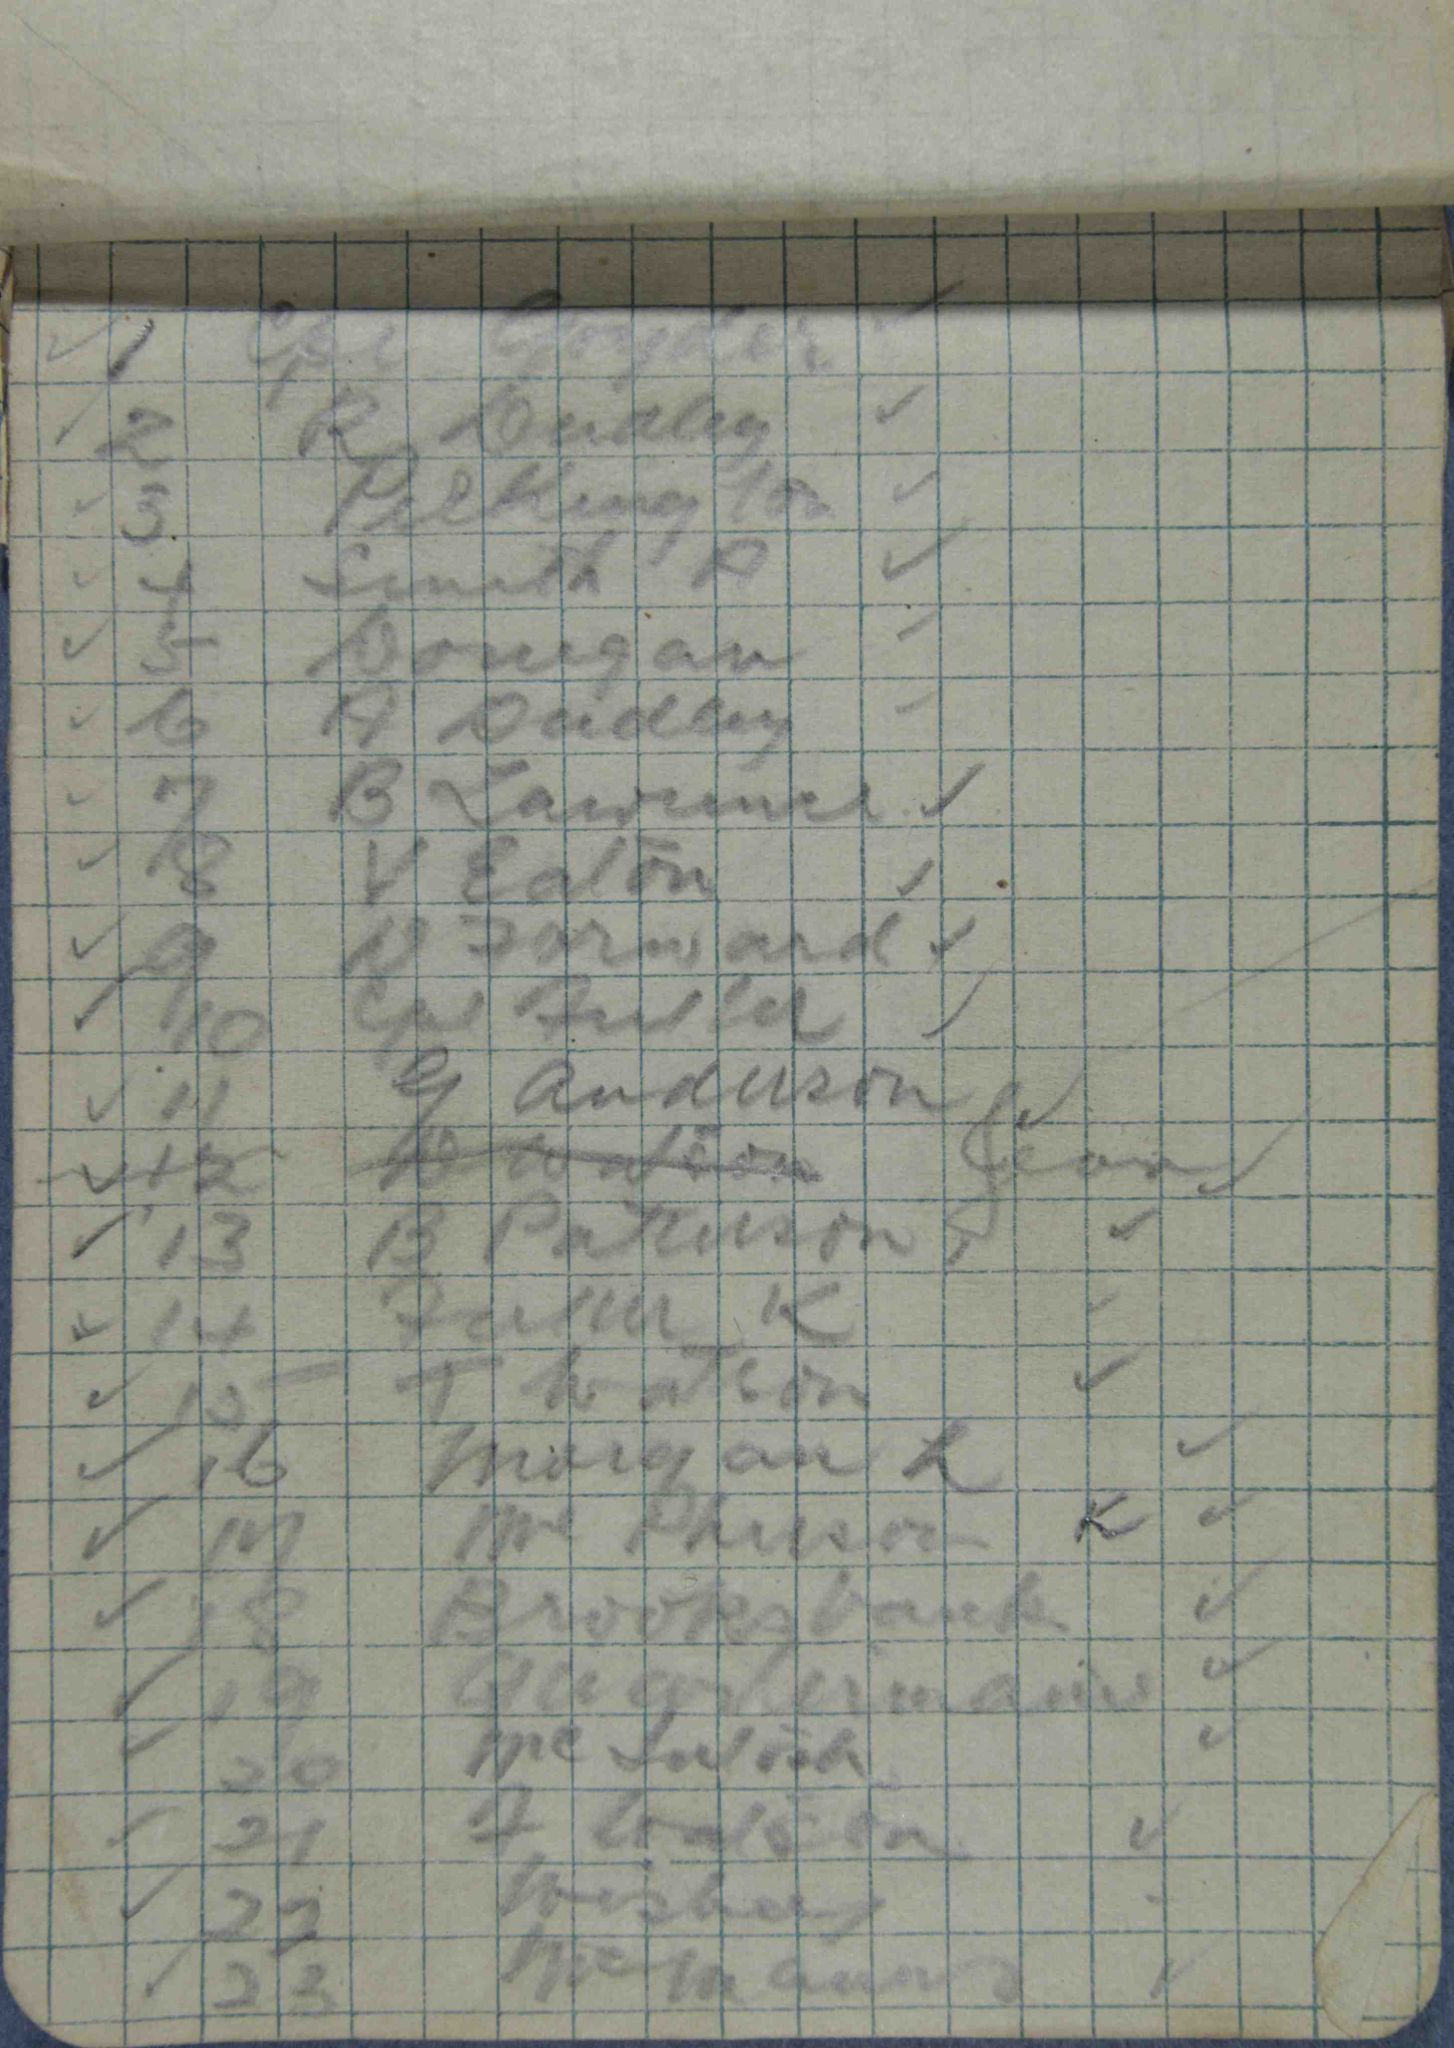 ✓ 1 Cpl Goyder ✓
✓ 2 R Dudley ✓
✓ 3 Pilkington ✓
✓ 4 Smith A ✓
✓ 5 Donegan ✓
✓ 6 A Dudley ✓
✓ 7 B Lawrence ✓
✓ 8 V Eaton ✓
✓ 9 D Forward ✓
✓ 10 Cpl Fuller ✓
✓ 11 G Anderson ✓
✓ 12 W Watson Jean ✓
✓ 13 B Paterson ✓
✓ 14 Fuller K ✓
✓ 15 T Watson ✓
✓ 16 Morgan L ✓
✓ 17 McPherson K ✓
✓ 18 Brooksbank ✓
✓ 19 Quartermaine ✓
✓ 20 McIntosh ✓
✓ 21 F Watson ✓
✓ 22
✓ 23 McManus ✓